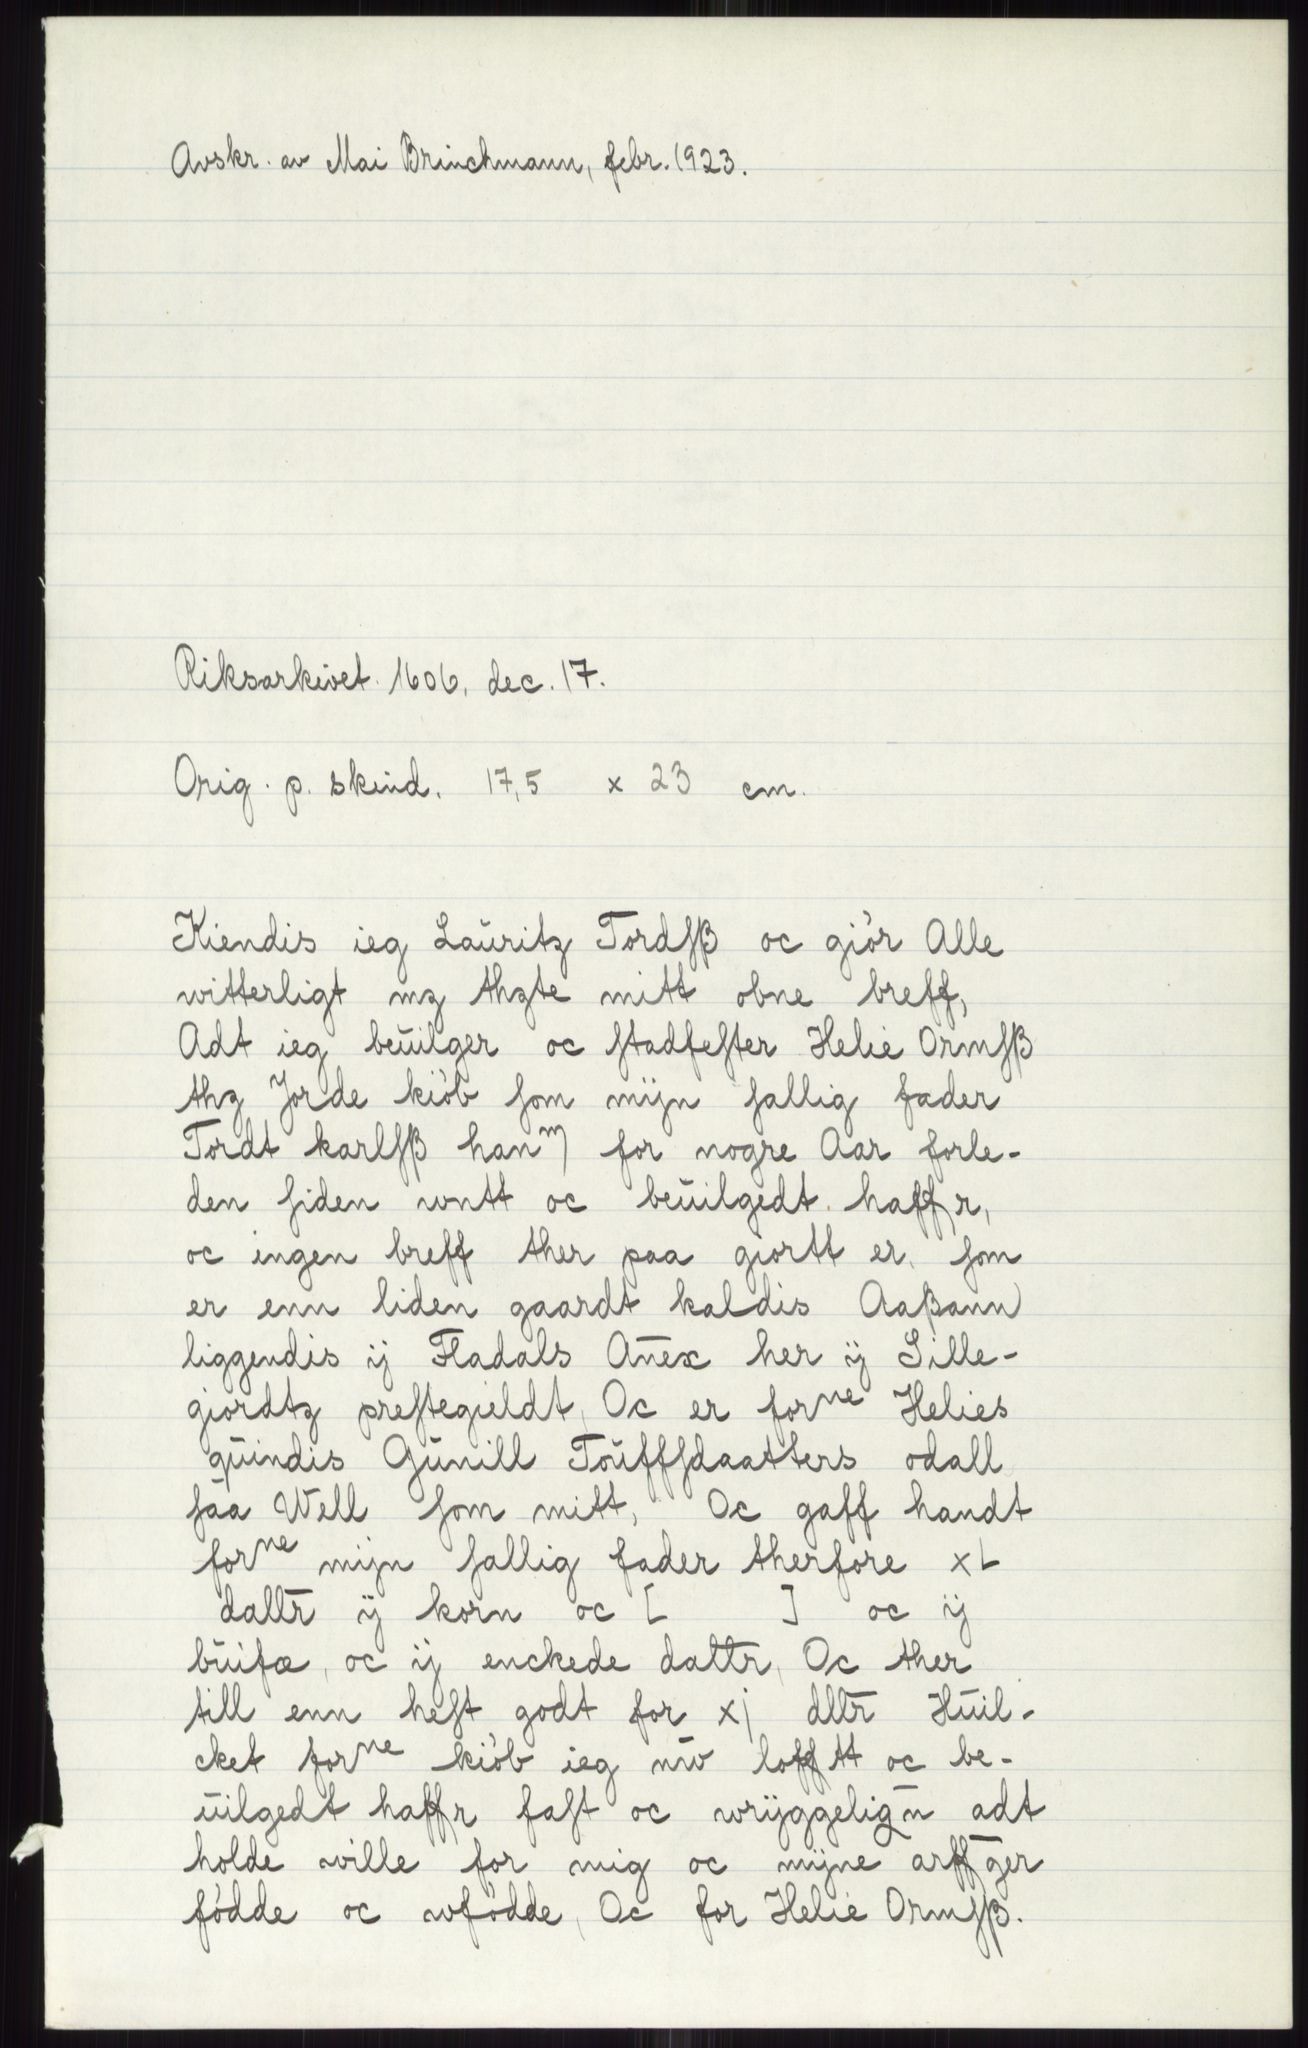 Avskr. av Mai Brinchmann, febr. 1923.
Riksarkivet 1606, dec. 17.
Orig. p. skind. 17,5 x 23 cm.
Kiendis ieg Laŭritz Tordſß oc giør Alle
witterligt mz thzte mitt obne breff,
Adt ieg beŭilger oc ſtadfeſter Helie Ormſß
thz Jorde kiøb ſom mijn ſallig fader
Tordt karlſß hanm for nogre Aar forle-
den ſiden wntt oc beŭilgedt haffr,
oc ingen breff ther paa giortt er, ſom
er enn liden gaardt kaldis Aaßann
liggendis ij Fladals An̄ex her ij Sille-
giordtz preſtegieldt, Oc er forne Helies
qŭindis Gŭnill Toŭffſdaatters odall
ſaa Well ſom mitt, Oc gaff handt
forne mijn ſallig fader therfore xL
dallr̄ ij korn oc [ ] oc ij
bŭifæ, oc ij enckede dallr, Oc ther
till enn heſt godt for xj dllr̄ Hŭil-
cket forne kiøb ieg nŭ lofftt oc be-
ŭilgedt haffr faſt oc wrÿggelign̄ adt
holde wille for mig oc mijne arffger
fødde oc wfødde, Oc for Helie Ormſß.